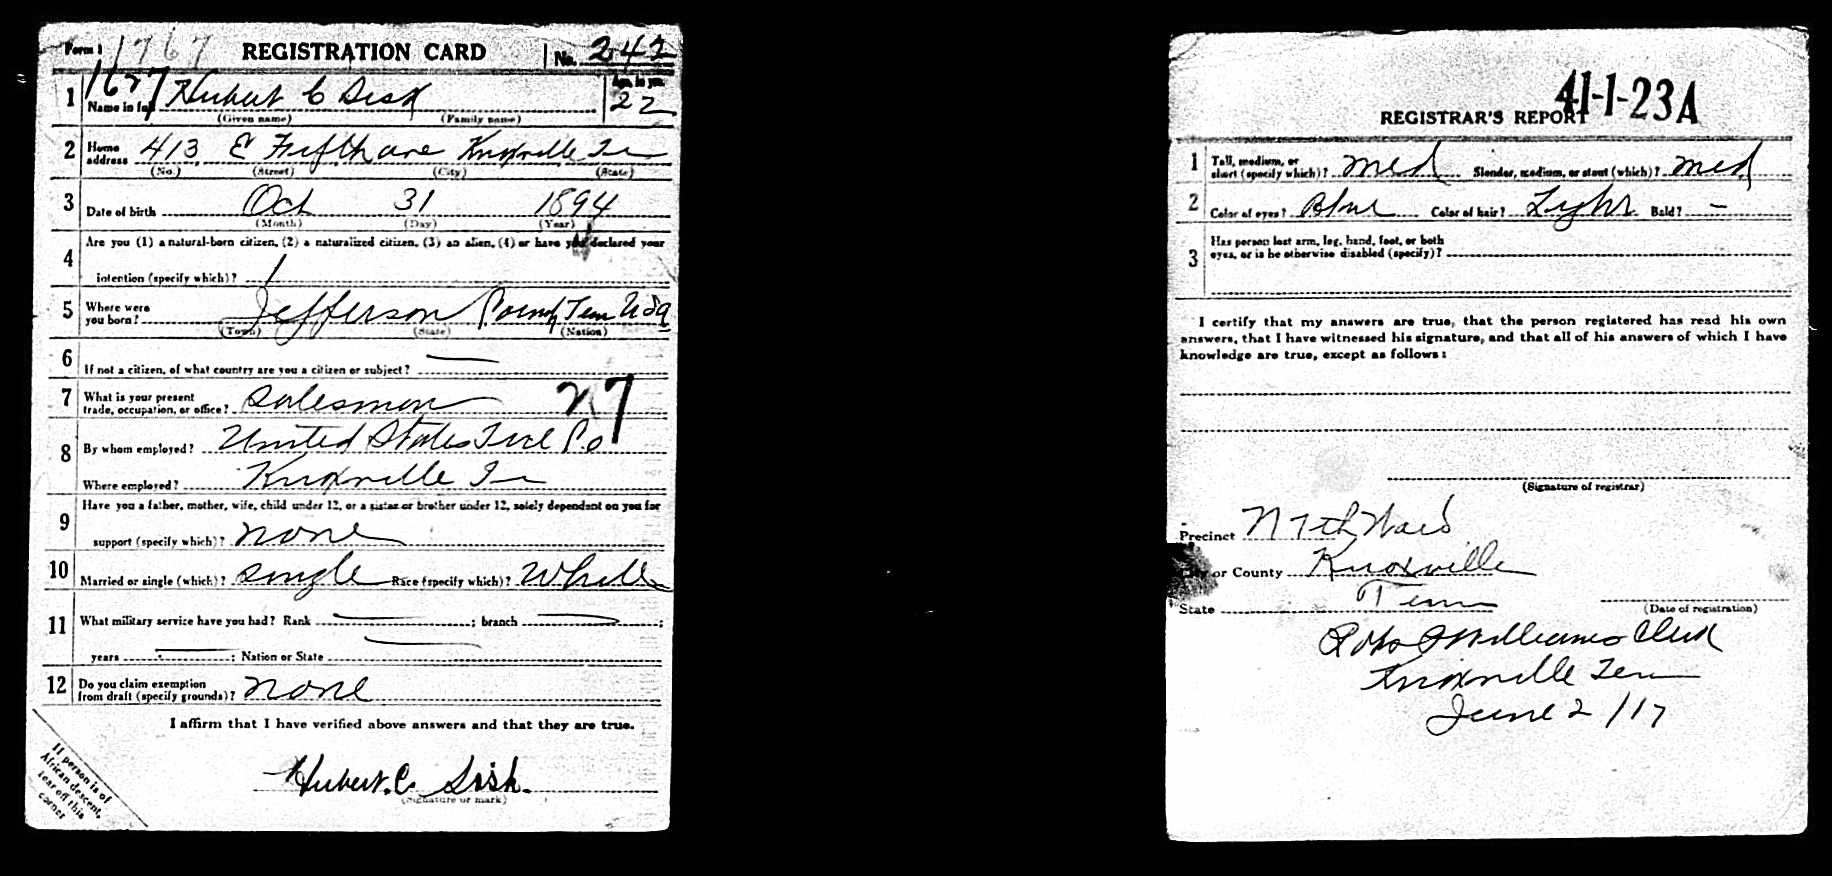 Form 1 1767 REGISTRATION CARD No. 242
1 1627 Name in full Hubert C Sisk Age, in yrs. 22
(Given name) (Family name)
2 Home address 413 E Fifth ave Knoxville Tn
(No.) (Street) (City) (State)
3 Date of birth Oct 31 1894
(Month) (Day) (Year)
4 Are you (1) a natural-born citizen, (2) a naturalized citizen, (3) an alien, (4) or have you declared your
intention (specify which)? 1
5 Where were you born? Jefferson County Tenn USA
(Town) (State) (Nation)
6 If not a citizen, of what country are you a citizen or subject? —
7 What is your present trade, occupation, or office? Salesman 27
8 By whom employed? United States Tire Co
Where employed? Knoxville Tn
9 Have you a father, mother, wife, child under 12, or a sister or brother under 12, solely dependent on you for
support (specify which)? none
10 Married or single (which)? single Race (specify which)? White
11 What military service have you had? Rank — ; branch — ;
years — ; Nation or State —
12 Do you claim exemption from draft (specify grounds)? none
I affirm that I have verified above answers and that they are true.
Hubert. C. Sisk.
(Signature or mark)
If person is of
African descent,
tear off this
corner
41-1-23A
REGISTRAR'S REPORT
1 Tall, medium, or short (specify which)? med Slender, medium, or stout (which)? med
2 Color of eyes? Blue Color of hair? Light Bald? —
3 Has person lost arm, leg, hand, foot, or both
eyes, or is he otherwise disabled (specify)?
I certify that my answers are true, that the person registered has read his own
answers, that I have witnessed his signature, and that all of his answers of which I have
knowledge are true, except as follows:
(Signature of registrar)
Precinct 7th Ward
City or County Knoxville
State Tenn
(Date of registration)
Williams Clerk
Knoxville Tenn
June 2/17